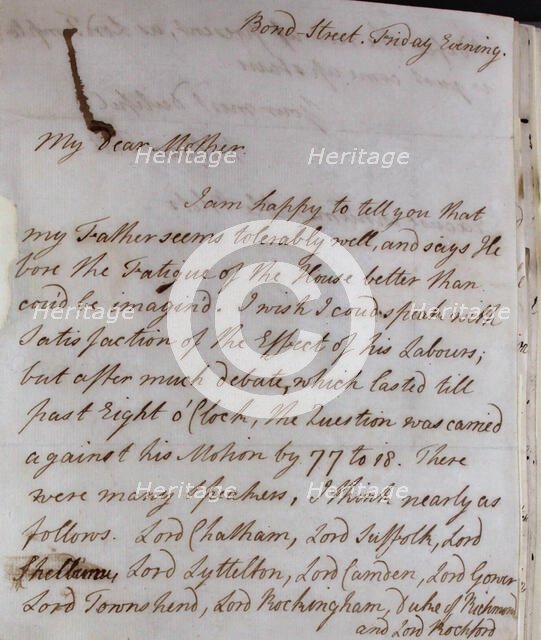 Bond-Street. Friday Evening.
My dear Mother.
I am happy to tell you that
my Father seems tolerably well, and says He
bore the Fatigue of the House better than
coud be imagin'd. I wish I coud speak with
Satisfaction of the Effect of his Labours;
but after much debate, which lasted till
past Eight o'Clock, the Question was carried
against his Motion by 77 to 18. There
were many Speakers, I think nearly as
follows. Lord Chatham, Lord Suffolk, Lord
Shelburne, Lord Lyttelton, Lord Camden, Lord Gower
Lord Townshend, Lord Rockingham, Duke of Richmond
and Lord Rochford
Heritage Heritage Heritage
Heritage Heritage
Heritage Heritage Heritage
Heritage Heritage
Heritage Heritage Heritage